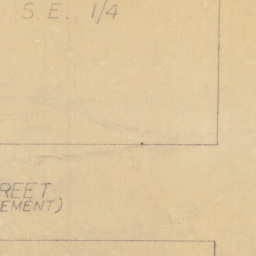 S.E. 1/4
REET
EMENT)